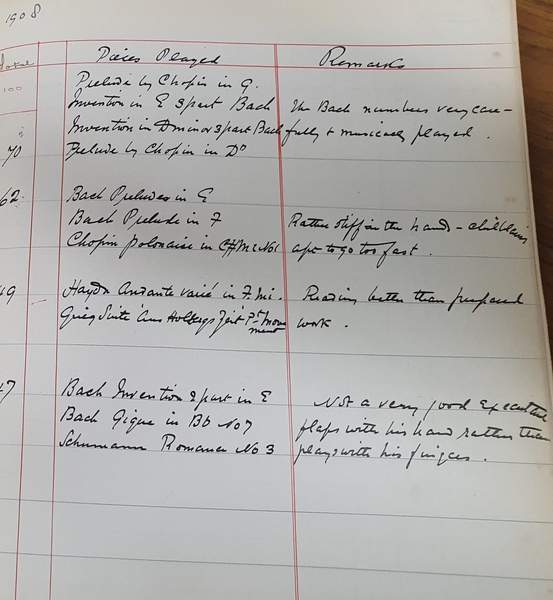 1908
Total
100
Pieces Played
Remarks
Prelude by Chopin in G.
Invention in E 3 part Bach
The Bach numbers very care-
Invention in D minor 3 part Bach
fully & musically played.
70
Prelude by Chopin in Do
62
Bach Preludes in G
Bach Prelude in F
Rather stiff in the hand - chilblains
Chopin Polonaise in C# Mi No 1
apt to go too fast.
49
Haydn Andante varié in F. mi.
Reading better than prepared
Grieg Suite Aus Holbergs Zeit Pt. move
ment
work.
47
Bach Invention 2 part in E
Not a very good Executant
Bach Gigue in Bb No 7
flaps with his hand rather than
Schumann Romance No 3
plays with his fingers.